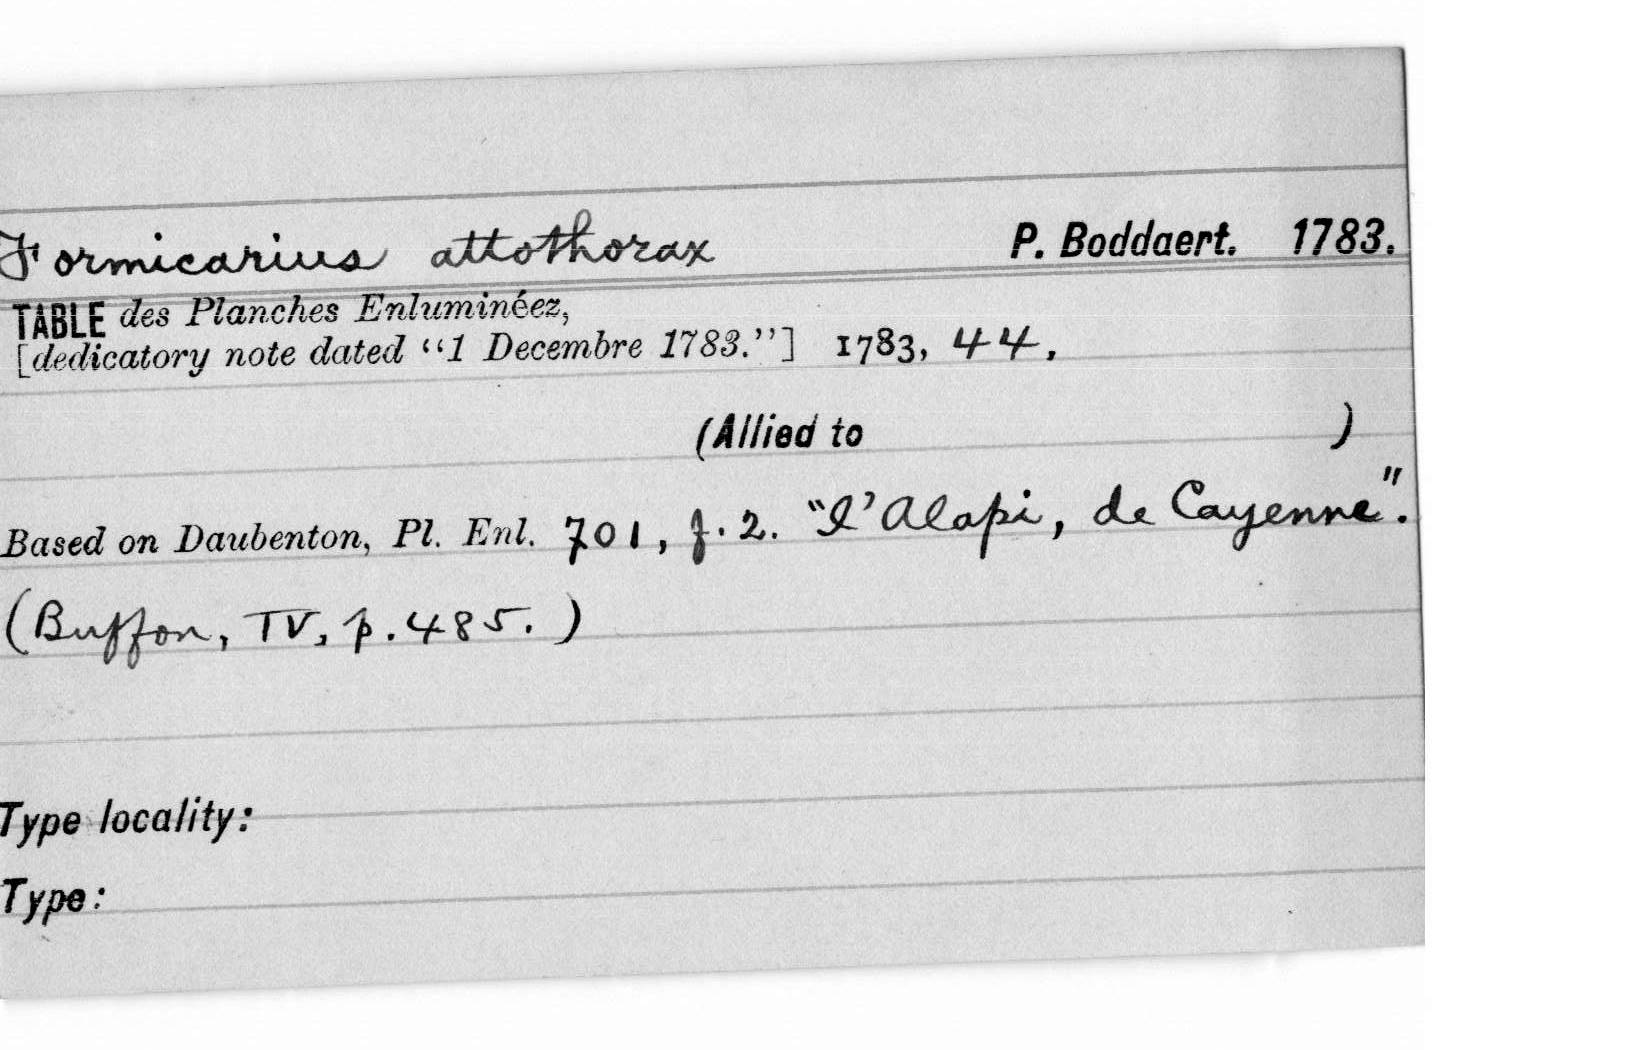 Formicarius attothorax P. Boddaert. 1783.
TABLE des Planches Enluminéez,
[dedicatory note dated "1 Decembre 1783."] 1783, 44.
(Allied to )
Based on Daubenton, Pl. Enl. 701, f. 2. "l'Alapi, de Cayenne".
(Buffon, IV, p. 485.)
Type locality:
Type: